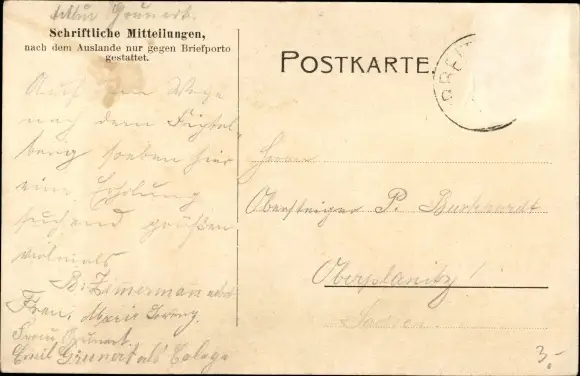 Arthur Grunert.
Schriftliche Mitteilungen,
nach dem Auslande nur gegen Briefporto
gestattet.
POSTKARTE
Auf dem Wege
nach dem Fichtel-
berg soeben hier
eine Erholung
suchend grüßen
vielmals
R. Zimerman
Frau Marie
Grunert.
Emil Grunert als Colege
Herrn
Obersteiger P. Burkhardt
Oberplanitz!
Sachsen.
3.-